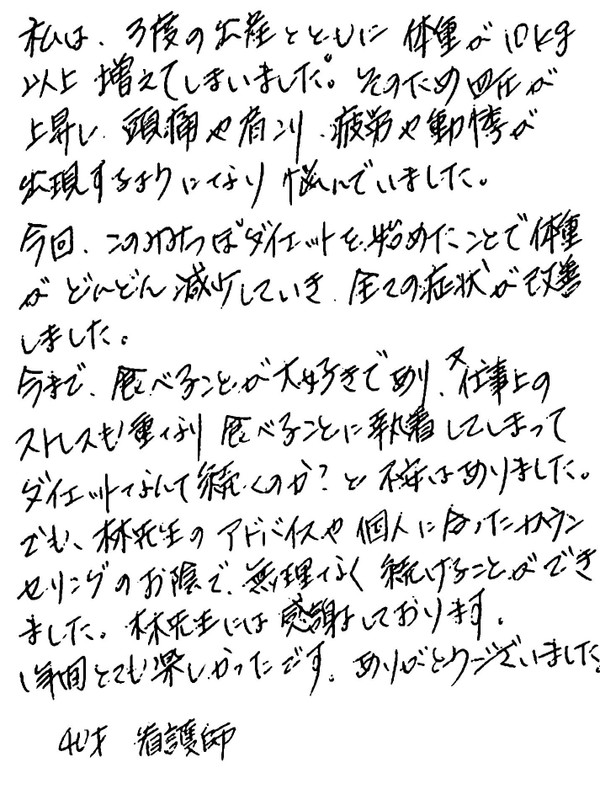 私は、3度の出産とともに 体重が10kg
以上 増えてしまいました。そのため血圧が
上昇し、頭痛や肩こり、疲労や動悸が
出現するようになり 悩んでいました。
今回、このみみつぼダイエットを始めたことで体重
が どんどん減少していき、全ての症状が改善
しました。
今まで、食べることが大好きであり、又仕事上の
ストレスも重なり 食べることに執着してしまって
ダイエットなんて続くのか?と不安はありました。
でも、林先生の アドバイスや個人に合ったカウン
セリングのお陰で、無理なく 続けることができ
ました。林先生には 感謝しております。
1年間とても楽しかったです。ありがとうございました。
40才 看護師